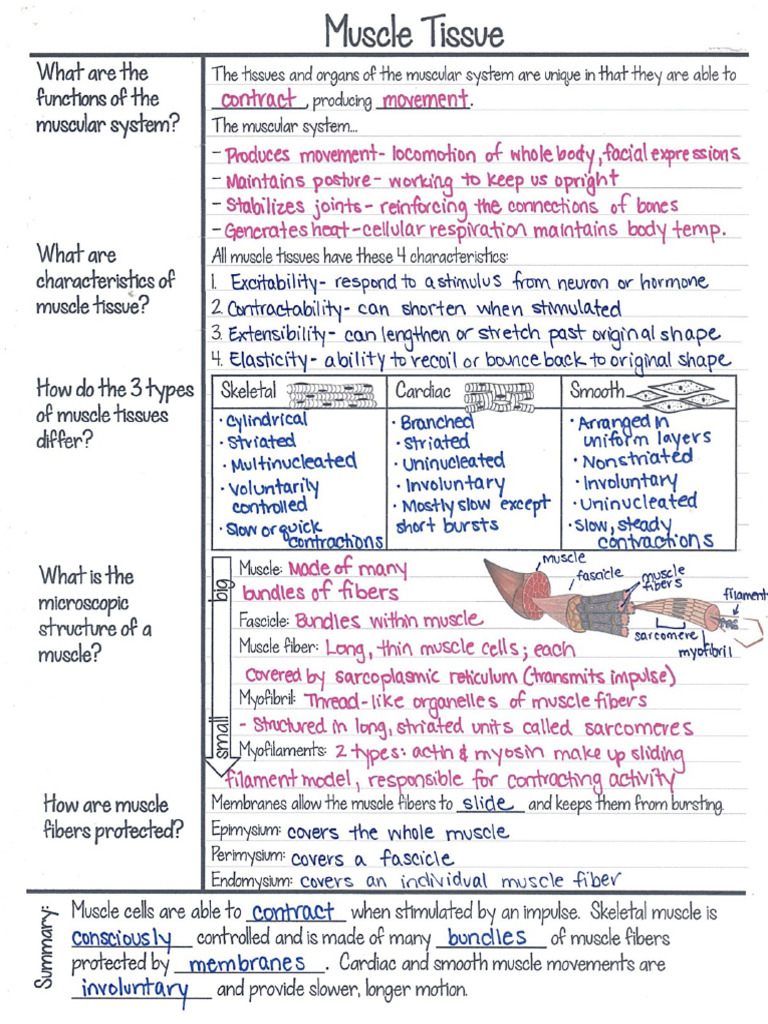 Muscle Tissue
What are the
functions of the
muscular system?
The tissues and organs of the muscular system are unique in that they are able to
contract, producing movement.
The muscular system...
- Produces movement- locomotion of whole body, facial expressions
- Maintains posture- working to keep us upright
- Stabilizes joints- reinforcing the connections of bones
- Generates heat-cellular respiration maintains body temp.
What are
characteristics of
muscle tissue?
All muscle tissues have these 4 characteristics:
1. Excitability- respond to a stimulus from neuron or hormone
2. Contractability- can shorten when stimulated
3. Extensibility- can lengthen or stretch past original shape
4. Elasticity- ability to recoil or bounce back to original shape
How do the 3 types
of muscle tissues
differ?
Skeletal
• Cylindrical
• Striated
• Multinucleated
• Voluntarily
controlled
• Slow or quick
contractions
Cardiac
• Branched
• Striated
• Uninucleated
• Involuntary
• Mostly slow except
short bursts
Smooth
• Arranged in
uniform layers
• Nonstriated
• Involuntary
• Uninucleated
• Slow, steady
contractions
What is the
microscopic
structure of a
muscle?
big
small
Muscle: Made of many
bundles of fibers
Fascicle: Bundles within muscle
Muscle fiber: Long, thin muscle cells; each
covered by sarcoplasmic reticulum (transmits impulse)
Myofibril: Thread-like organelles of muscle fibers
- Structured in long, striated units called sarcomeres
Myofilaments: 2 types: actin & myosin make up sliding
filament model, responsible for contracting activity
muscle
fascicle
muscle
fibers
filament
sarcomere
myofibril
How are muscle
fibers protected?
Membranes allow the muscle fibers to slide and keeps them from bursting.
Epimysium: covers the whole muscle
Perimysium: covers a fascicle
Endomysium: covers an individual muscle fiber
Summary:
Muscle cells are able to contract when stimulated by an impulse. Skeletal muscle is
consciously controlled and is made of many bundles of muscle fibers
protected by membranes. Cardiac and smooth muscle movements are
involuntary and provide slower, longer motion.